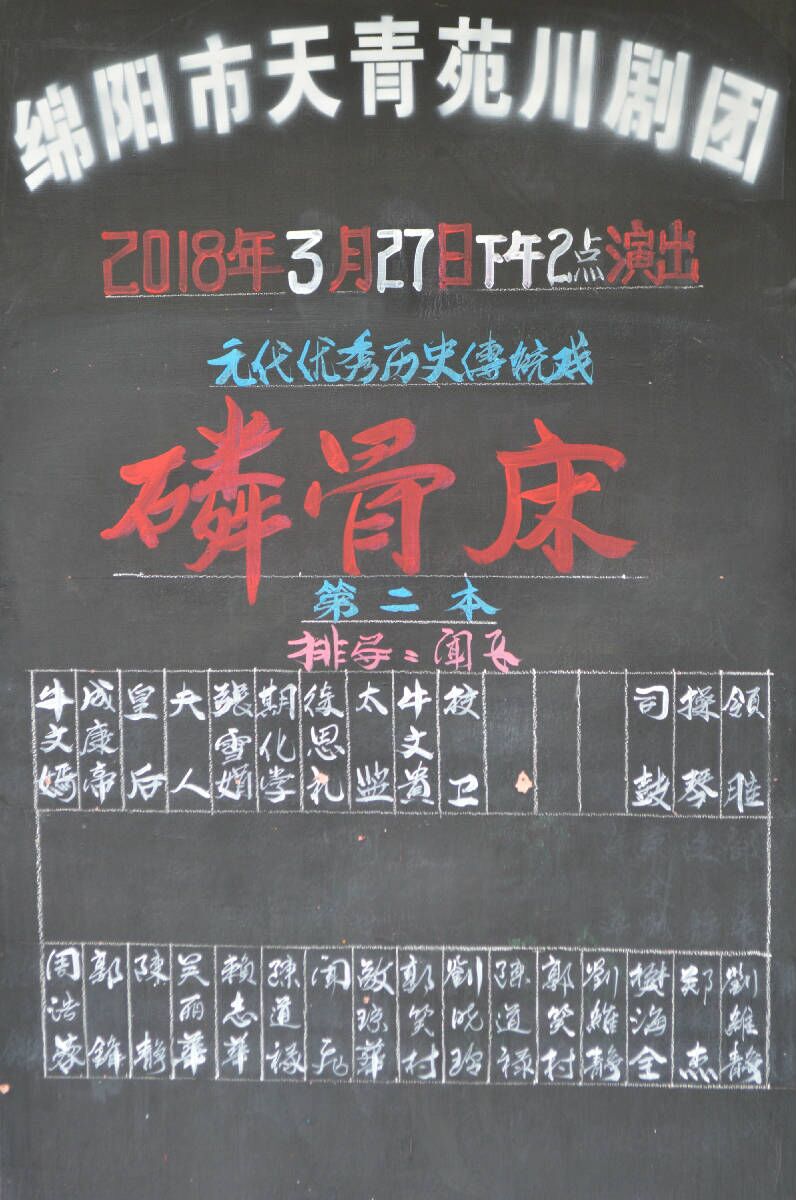 绵阳市天青苑川剧团
2018年3月27日下午2点演出
元代优秀历史傳统戏
磷骨床
第二本
排导：闻飞
牛文嫣
成康帝
皇后
夫人
張雪娟
期化学
徐思礼
太监
牛文貴
校卫
司鼓
操琴
领腔
周浩蓉
郭鋒
陳静
吴丽華
賴志華
陳道禄
闻飞
敏琼華
郭笑村
劉晓玲
陳道禄
郭笑村
劉維静
樊海全
郑杰
劉維静